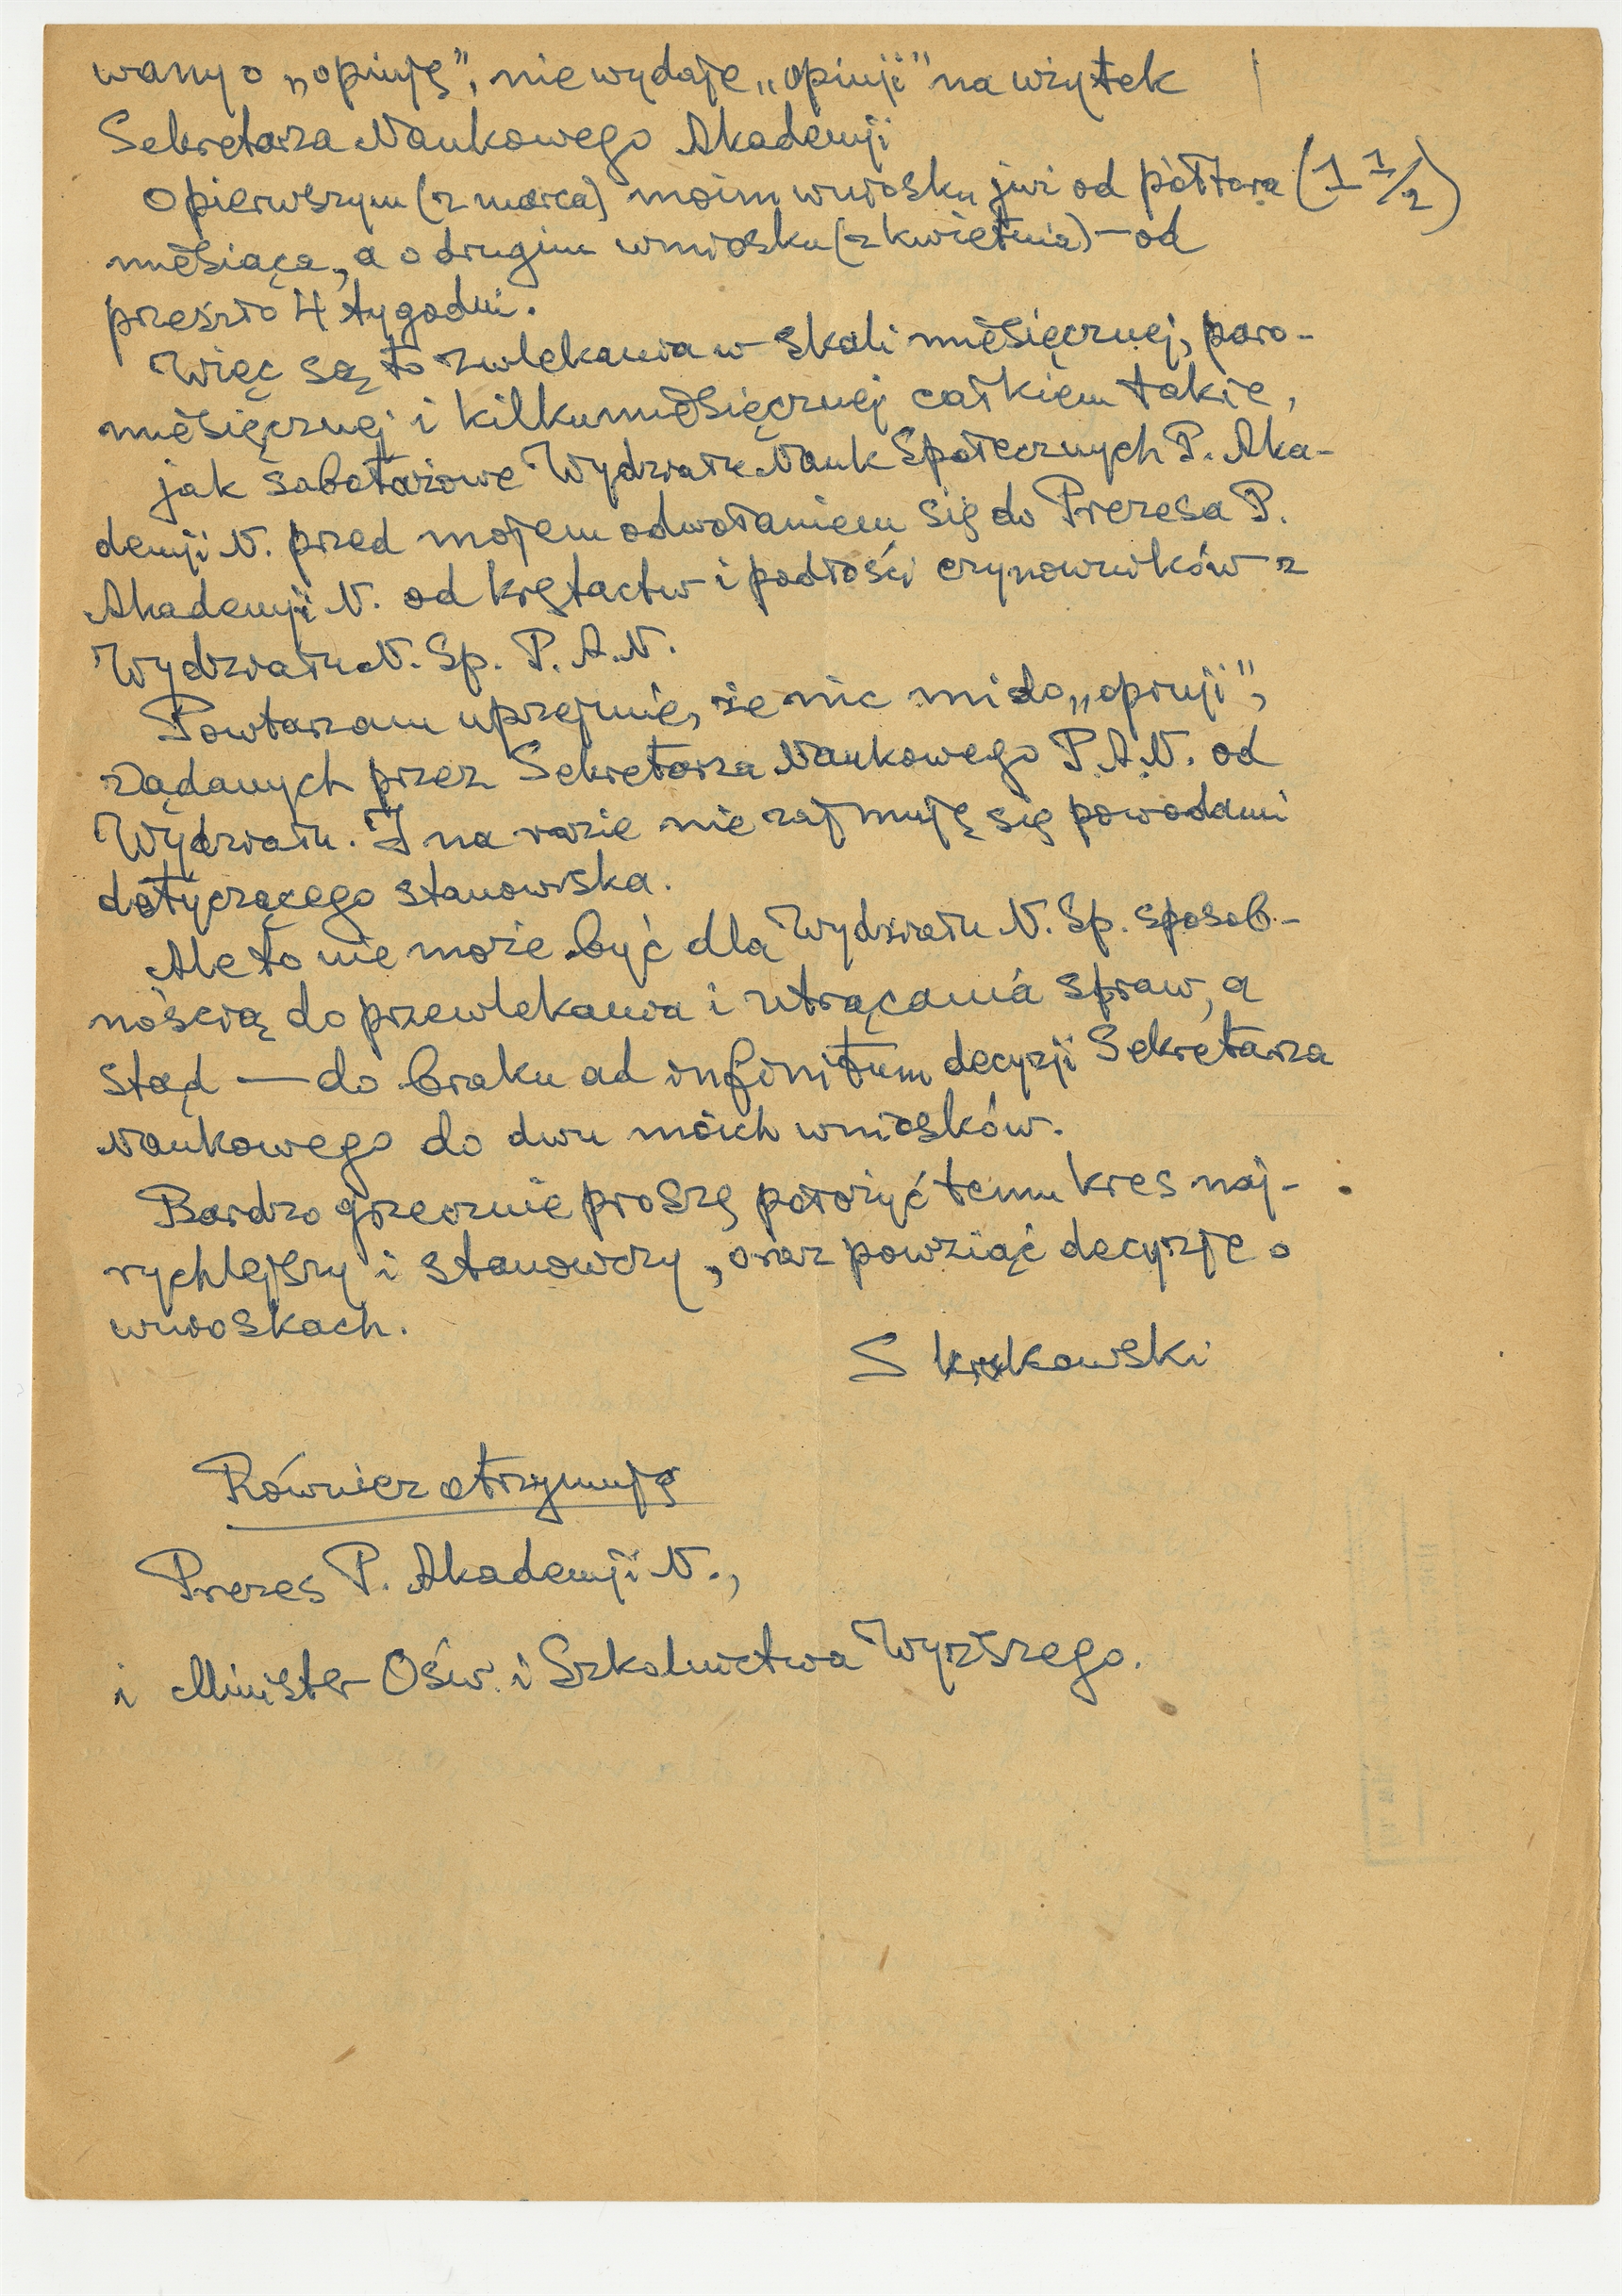 wany o „opinję”, nie wydaje „opinji” na użytek
Sekretarza Naukowego Akademji
O pierwszym (z marca) moim wniosku już od półtora (1 1/2)
miesiąca, a o drugim wniosku (z kwietnia) — od
przeszło 4 tygodni.
Więc są to zwlekania w skali miesięcznej, paro-
miesięcznej i kilkumiesięcznej całkiem takie,
jak sabotażowe Wydziału Nauk Społecznych P. Aka-
demji N. przed mojem odwołaniem się do Prezesa P.
Akademji N. od krętactw i podłości czynowników z
Wydziału N. Sp. P. A. N.
Powtarzam uprzejmie, że nic mi do „opinji”,
żądanych przez Sekretarza Naukowego P. A. N. od
Wydziału. I na razie nie zajmuję się powodami
dotyczącego stanowiska.
Ale to nie może być dla Wydziału N. Sp. sposob-
nością do przewlekania i utrącania spraw, a
stąd — do braku ad infinitum decyzji Sekretarza
Naukowego do dwu moich wniosków.
Bardzo grzecznie proszę położyć temu kres naj-
rychlejszy i stanowczy, oraz powziąć decyzje o
wnioskach.
S Krukowski
Również otrzymują
Prezes P. Akademji N.,
i Minister Ośw. i Szkolnictwa Wyższego.